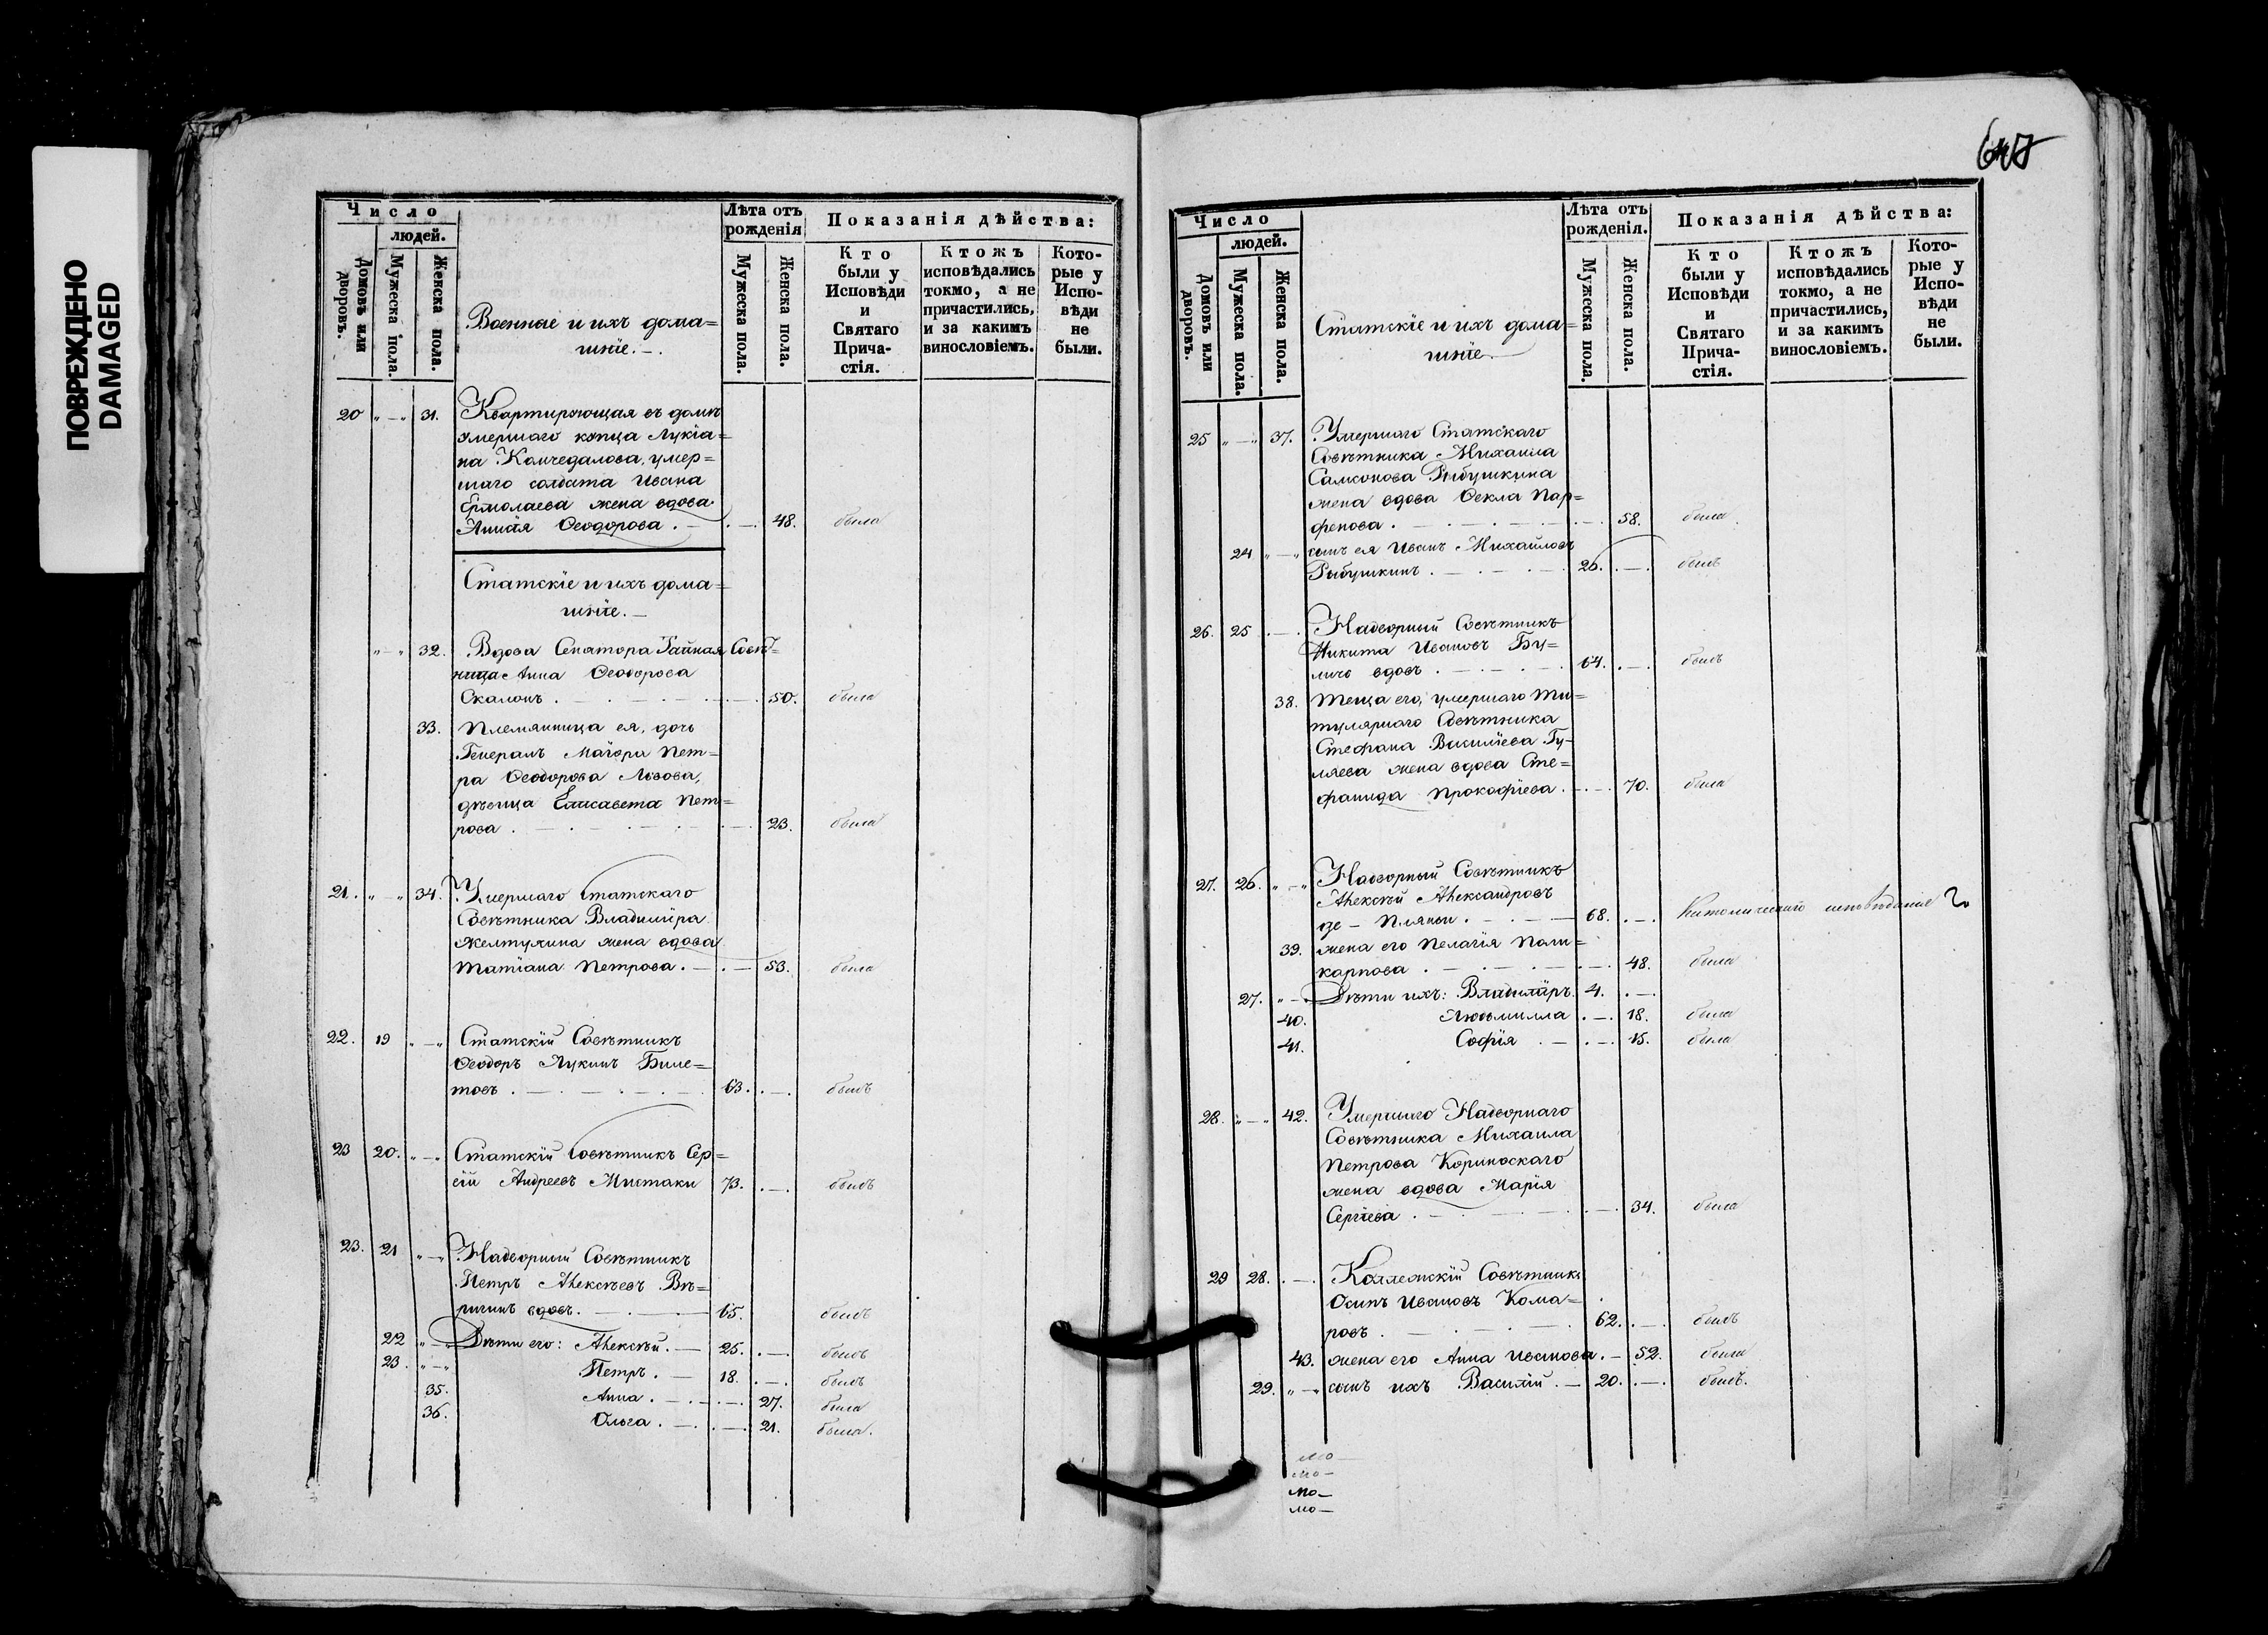 ПОВРЕЖДЕНО
DAMAGED
Число
людей.
Домовъ или дворовъ.
Мужеска пола.
Женска пола.
Военные и ихъ дома=
шніе.
Лѣта отъ
рожденія
Мужеска пола.
Женска пола.
Показанія дѣйства:
Кто
были у
Исповѣди
и
Святаго
Прича-
стія.
Ктожъ
исповѣдались
токмо, а не
причастились,
и за какимъ
винословіемъ.
Кото-
рые у
Испо-
вѣди
не
были.
20 „—„ 31. Квартирующая въ домѣ
умершаго купца Лукіа=
на Комчедалова, умер=
шаго солдата Ивана
Ермолаева жена вдова
Ѳеодорова . — . — 48. была
Статскіе и ихъ дома=
шніе. —
„—„ 32. Вдова Сенатора Тайная Совѣт=
ница Анна Ѳеодорова
Скалонъ . — . — 50. была
33. Племянница ея, дочь
Генералъ Маіора Пет=
ра Ѳеодорова Львова,
дѣвица Елисавета Пет=
рова . — . — 23. была
21. „—„ 34. Умершаго Статскаго
Совѣтника Владиміра
Желтухина жена вдова
Татіана Петрова . — . — 53. была
22. 19 „—„ Статскій Совѣтникъ
Ѳеодоръ Лукинъ Биле=
товъ . — . — 63. . — . былъ
23 20. „—„ Статскій Совѣтникъ Сер=
гій Андреевъ Мистаки 73. . — . былъ
23. 21 „—„ Надворный Совѣтникъ
Петръ Алексѣевъ Вѣ=
ригинъ вдовъ . — . — 65. былъ
22 „—„ Дѣти его: Алексѣй . — 25. . — . былъ
23. „—„ Петръ . — 18. . — . былъ
35. Анна . — . — 27. была
36. Ольга . — . — 21. была.
Число
людей.
Домовъ или дворовъ.
Мужеска пола.
Женска пола.
Статскіе и ихъ дома=
шніе.
Лѣта отъ
рожденія.
Мужеска пола.
Женска пола.
Показанія дѣйства:
Кто
были у
Исповѣди
и
Святаго
Прича-
стія.
Ктожъ
исповѣдались
токмо, а не
причастились,
и за какимъ
винословіемъ.
Кото-
рые у
Испо-
вѣди
не
были.
25 „—„ 37. Умершаго Статскаго
Совѣтника Михаила
Самсонова Рыбушкина
жена вдова Ѳекла Пар=
фенова . — . — 58. была
24 „—„ сынъ ея Иванъ Михайловъ
Рыбушкинъ . — . — 26. . — . былъ
26. 25 . — . Надворный Совѣтникъ
Никита Ивановъ Бу=
личъ вдовъ . — . — 64. . — . былъ
38. Теща его, умершаго Ти=
тулярнаго Совѣтника
Стефана Василіева Гу=
ляева жена вдова Сте=
фанида Прокофіева . — . — 70. была
27. 26. „—„ Надворный Совѣтникъ
Алексѣй Александровъ
де — Пляньи . — . — 68. . — . Католическаго исповѣданіе
39. жена его Пелагія Поли=
карпова . — . — 48. была
27. „—„ Дѣти ихъ: Владиміръ. 4. . — .
40. Людмилла . — . 18. была
41. Софія . — . — 15. была
28. „—„ 42. Умершаго Надворнаго
Совѣтника Михаила
Петрова Коринѳскаго
жена вдова Марія
Сергіева . — . — 34. была
29 28. . — . Коллежскій Совѣтникъ
Осипъ Ивановъ Кома=
ровъ . — . — 62. . — . былъ
43. жена его Анна Иванова . — 52. была
29. „—„ сынъ ихъ Василій . — 20. . — . былъ.
мо —
мо —
мо —
мо —